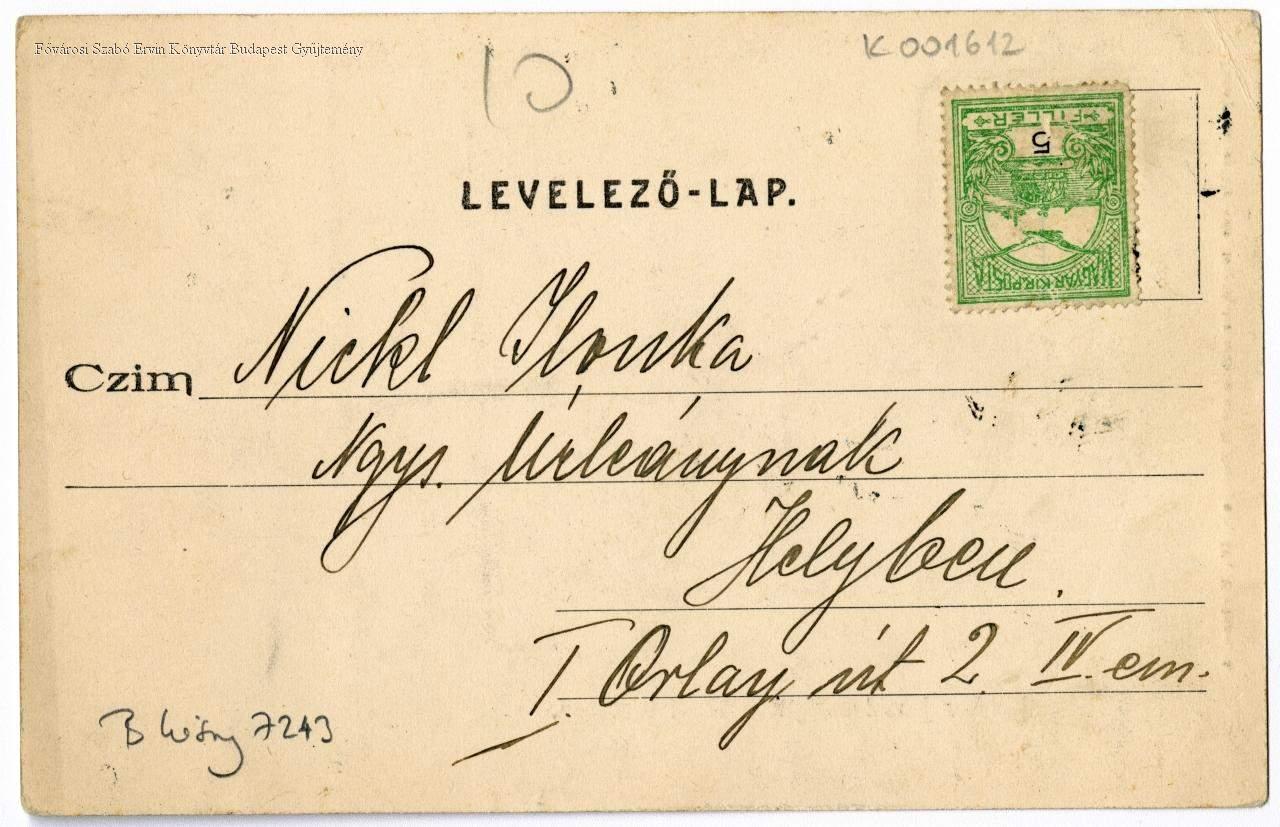 Fővárosi Szabó Ervin Könyvtár Budapest Gyűjtemény
K 001612
10.
MAGYAR KIR. POSTA
5
FILLÉR
LEVELEZŐ-LAP.
Czim Nickl Ilonka
Ngys. Úrleánynak
Helyben.
I. Orlay út 2 IV. em.
B 7243